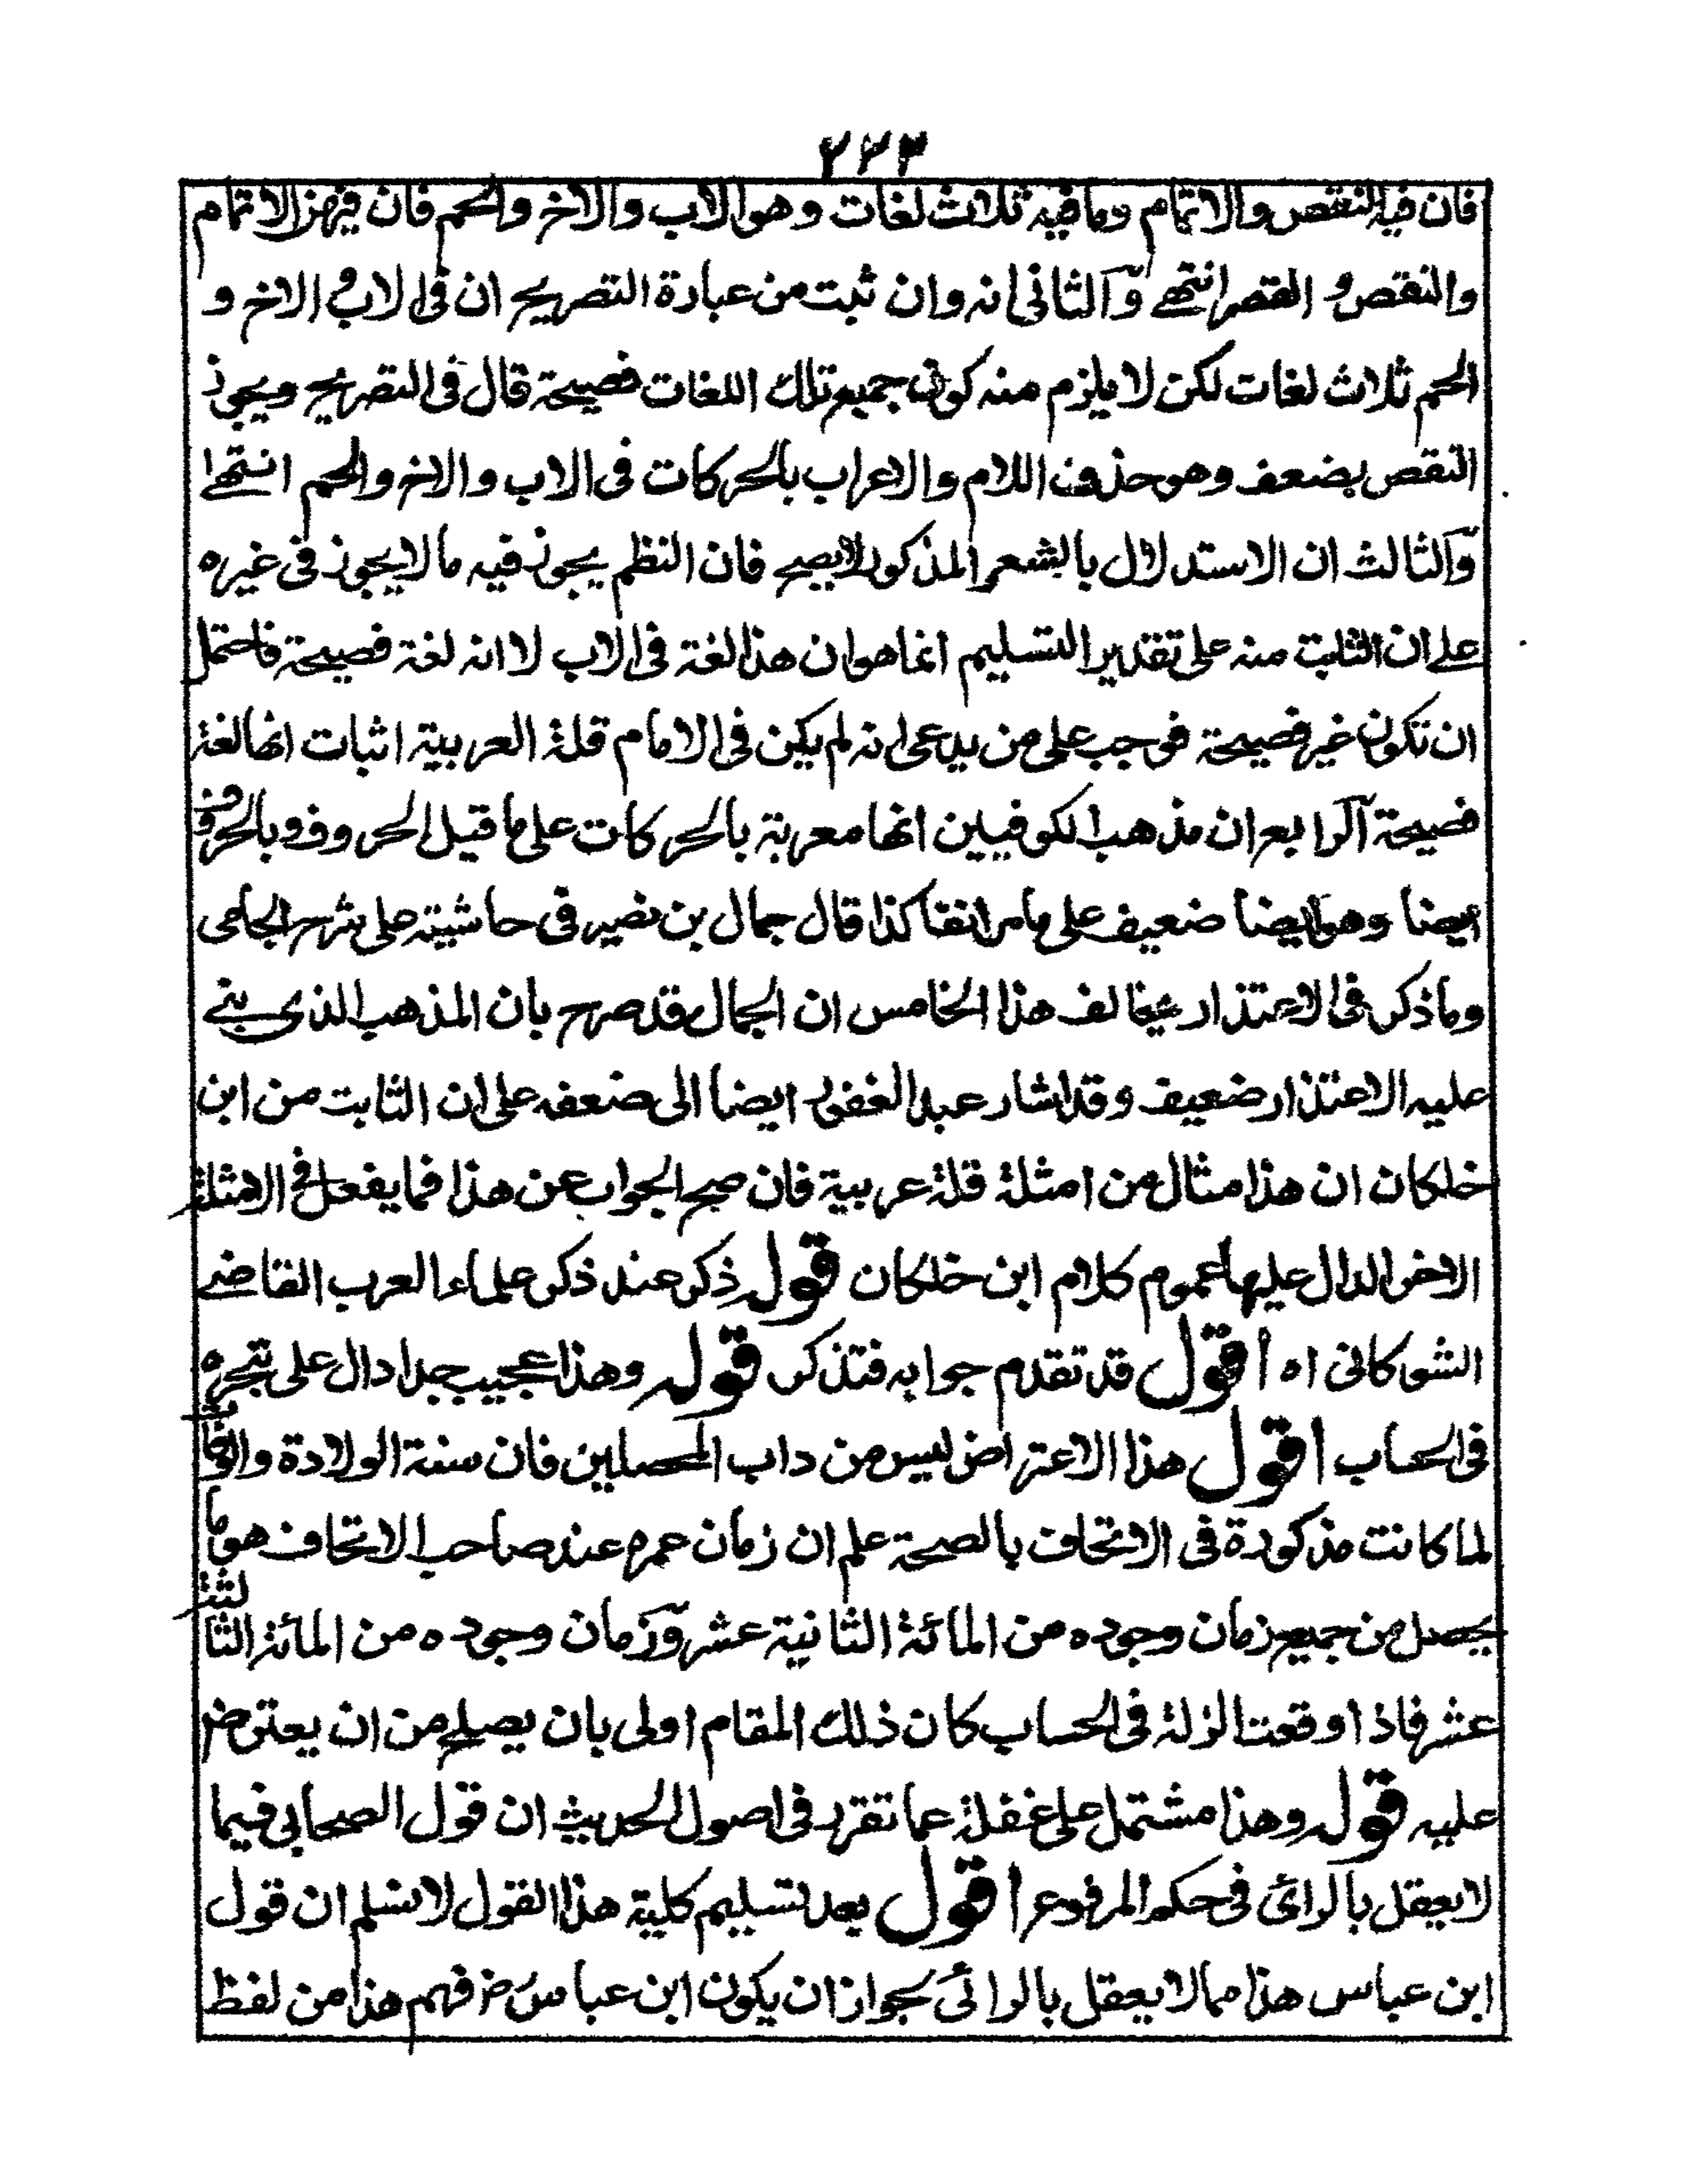 ٢٢٣
فان فيه النقص والاتمام وما فيه ثلاث لغات وهو الاب والاخ والحم فان فيهن الاتمام
والنقص و القصر انتهے والثانى انه وان ثبت من عبارة التصريح ان فى الاب و الاخ و
الحم ثلاث لغات لكن لا يلزم منه كون جميع تلك اللغات فصيحة قال فى التصريح ويجوز
النقص بضعف وهو حذف اللام والاعراب بالحركات فى الاب والاخ والحم انتهے
والثالث ان الاستدلال بالشعر المذكور لا يصح فان النظم يجوز فيه ما لا يجوز فى غيره
علے ان الثابت منه على تقدير التسليم انما هو ان هذا لغة فى الاب لا انه لغة فصيحة فاحتمل
ان تكون غير فصيحة فوجب على من يدعى انه لم يكن فى الامام قلة العربية اثبات انها لغة
فصيحة الرابع ان مذهب الكوفيين انها معربة بالحركات على ما قيل الحروف وبالحروف
ايضا وهو ايضا ضعيف على ما مر انفا كذا قال جمال بن نصير فى حاشيته على شرح الجامى
وما ذكر فى الاعتذار يخالف هذا الخامس ان الجمال قد صرح بان المذهب الذى بنى
عليه الاعتذار ضعيف وقد اشار عبد الغفور ايضا الى ضعفه على ان الثابت من ابن
خلكان ان هذا مثال من امثلة قلة عربية فان صح الجواب عن هذا فما يفعل فى الامثلة
الاخر الدال عليها عموم كلام ابن خلكان قوله ذكر عند ذكر علماء العرب القاضے
الشوكانى اه اقول قد تقدم جوابه فتذكر قوله وهذا عجيب جدا دال على تبحره
فى الحساب اقول هذا الاعتراض ليس من داب المحصلين فان سنة الولادة والوفاة
لما كانت مذكورة فى الاتحاف بالصحة علم ان زمان عمره عند صاحب الاتحاف هو ما
يحصل من جميع زمان وجوده من المائة الثانية عشر وزمان وجوده من المائة الثالثة
عشر فاذا وقعت الزلة فى الحساب كان ذلك المقام اولى بان يصلح من ان يعترض
عليه قوله وهذا مشتمل على غفلة عما تقرر فى اصول الحديث ان قول الصحابى فيما
لا يعقل بالرائ فى حكم المرفوع اقول بعد تسليم كلية هذا القول لا نسلم ان قول
ابن عباس هذا مما لا يعقل بالرائى بجواز ان يكون ابن عباس رض فهم هذا من لفظ